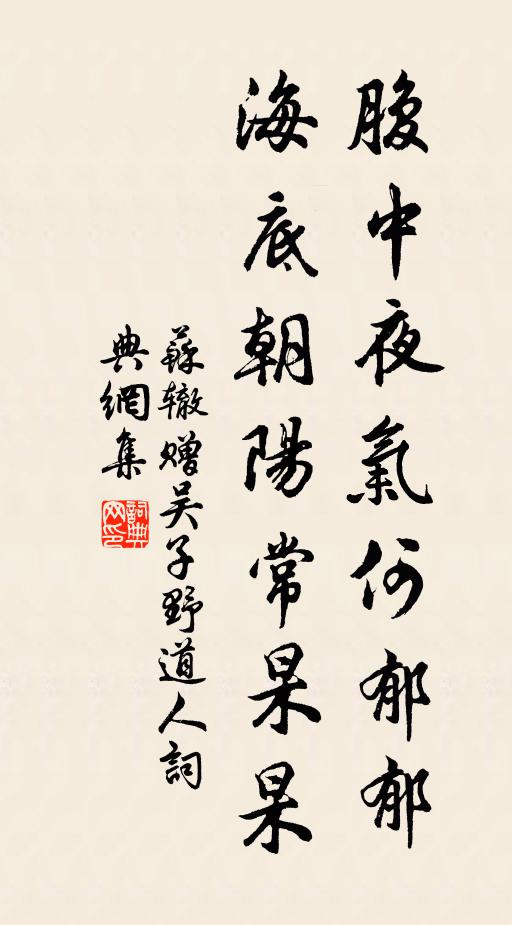 腹中夜氣何郁郁
海底朝陽常杲杲
蘇辙赠吴子野道人詞
典網集
詞典
网印